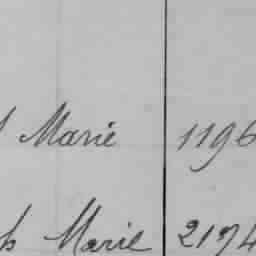 Marie 1196
Marie 2194